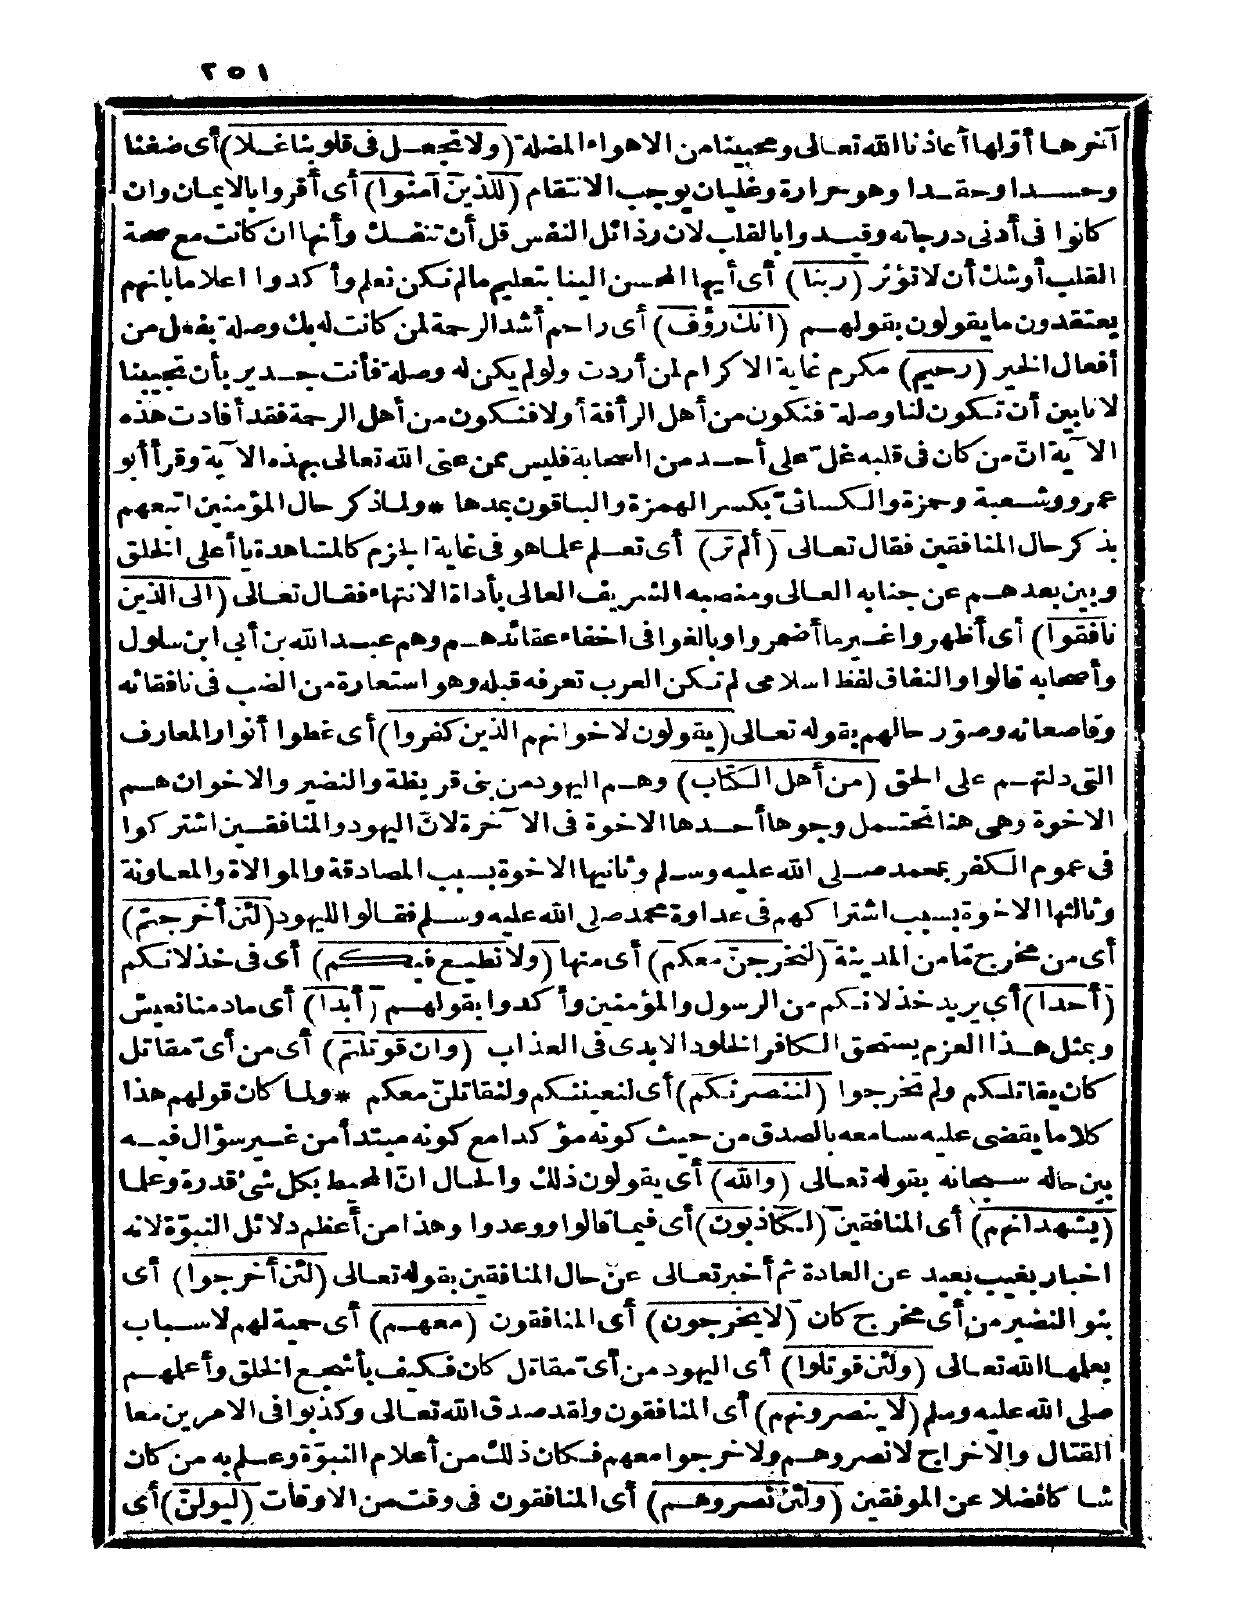 ٢٥١
آخرها أولها أعاذنا الله تعالى ومحبينا من الاهواء المضلة (ولا تجعل فى قلوبنا غلا) أى ضغنا
وحسدا وحقدا وهو حرارة وغليان يوجب الانتقام (للذين آمنوا) أى أقروا بالايمان وان
كانوا فى أدنى درجاته وقيدوا بالقلب لان رذائل النفس قل أن تنفك وأنها ان كانت مع صحة
القلب أوشك أن لا تؤثر (ربنا) أى أيها المحسن الينا بتعليم مالم نكن نعلم وأكدوا اعلاما بانهم
يعتقدون ما يقولون بقولهم (انك رؤف) أى راحم أشد الرحمة لمن كانت له بك وصلة بفعل من
أفعال الخير (رحيم) مكرم غاية الاكرام لمن أردت ولو لم يكن له وصلة فأنت جدير بأن تجيبنا
لانا بين أن تكون لنا وصلة فنكون من أهل الرأفة أو لا فنكون من أهل الرحمة فقد أفادت هذه
الآية ان من كان فى قلبه غل على أحد من الصحابة فليس ممن عنى الله تعالى بهذه الآية وقرأ أبو
عمرو وشعبة وحمزة والكسائى بكسر الهمزة والباقون بمدها * ولما ذكر حال المؤمنين اتبعهم
بذكر حال المنافقين فقال تعالى (ألم تر) أى تعلم علما هو فى غاية الجزم كالمشاهدة يا أعلى الخلق
وبين بعدهم عن جنابه العالى ومنصبه الشريف العالى بأداة الانتهاء فقال تعالى (الى الذين
نافقوا) أى أظهروا غير ما أضمروا وبالغوا فى اخفاء عقائدهم وهم عبد الله بن أبي ابن سلول
وأصحابه قالوا والنفاق لفظ اسلامى لم تكن العرب تعرفه قبله وهو استعارة من الضب فى نافقائه
وقاصعائه وصوّر حالهم بقوله تعالى (يقولون لاخوانهم الذين كفروا) أى غطوا أنوار المعارف
التى دلتهم على الحق (من أهل الكتاب) وهم اليهود من بنى قريظة والنضير والاخوان هم
الاخوة وهى هنا تحتمل وجوها أحدها الاخوة فى الآخرة لانّ اليهود والمنافقين اشتركوا
فى عموم الكفر بمحمد صلى الله عليه وسلم وثانيها الاخوة بسبب المصادقة والموالاة والمعاونة
وثالثها الاخوة بسبب اشتراكهم فى عداوة محمد صلى الله عليه وسلم فقالوا لليهود (لئن أخرجتم)
أى من مخرج مّا من المدينة (لنخرجنّ معكم) أى منها (ولا نطيع فيكم) أى فى خذلانكم
(أحدا) أي يريد خذلانكم من الرسول والمؤمنين وأكدوا بقولهم (أبدا) أى مادمنا نعيش
وبمثل هذا العزم يستحق الكافر الخلود الابدى فى العذاب (وان قوتلتم) أى من أىّ مقاتل
كان يقاتلكم ولم تخرجوا (لننصرنكم) أى لنعيننكم ولنقاتلنّ معكم * ولما كان قولهم هذا
كلاما يقضى عليه سامعه بالصدق من حيث كونه مؤكدا مع كونه مبتدأ من غير سؤال فيه
بين حاله سبحانه بقوله تعالى (والله) أى يقولون ذلك والحال انّ المحيط بكل شئ قدرة وعلما
(يشهد انهم) أى المنافقين (لكاذبون) أى فيما قالوا ووعدوا وهذا من أعظم دلائل النبوّة لانه
اخبار بغيب بعيد عن العادة ثم أخبر تعالى عن حال المنافقين بقوله تعالى (لئن أخرجوا) أى
بنو النضير من أى مخرج كان (لا يخرجون) أى المنافقون (معهم) أى حمية لهم لاسباب
يعلمها الله تعالى (ولئن قوتلوا) أى اليهود من أىّ مقاتل كان فكيف بأشجع الخلق وأعلمهم
صلى الله عليه وسلم (لا ينصرونهم) أى المنافقون ولقد صدق الله تعالى وكذبوا فى الامرين معا
القتال والاخراج لا نصروهم ولا خرجوا معهم فكان ذلك من أعلام النبوّة وعلم به من كان
شاكا فضلا عن الموفقين (ولئن نصروهم) أى المنافقون فى وقت من الاوقات (ليولنّ) أى